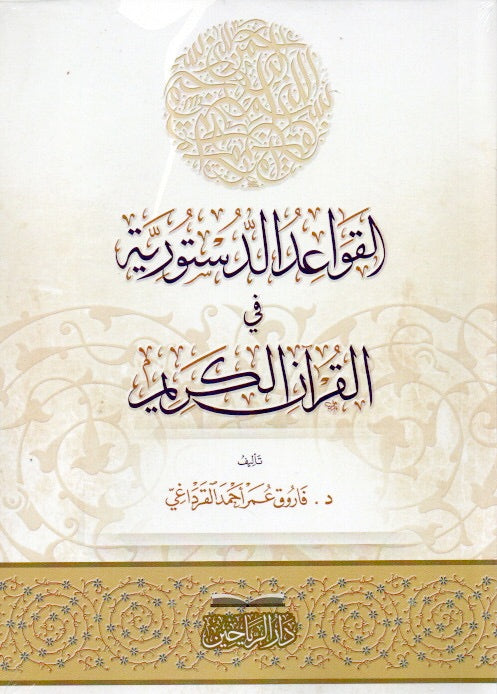 القَوَاعِدُ الدُّستُورِيَّة
في
القُرآن الكَرِيم
تَأليف
د. فَارُوق عُمَر أحْمَد القَرَدَاغِيّ
دَار الرَّيَاحِين